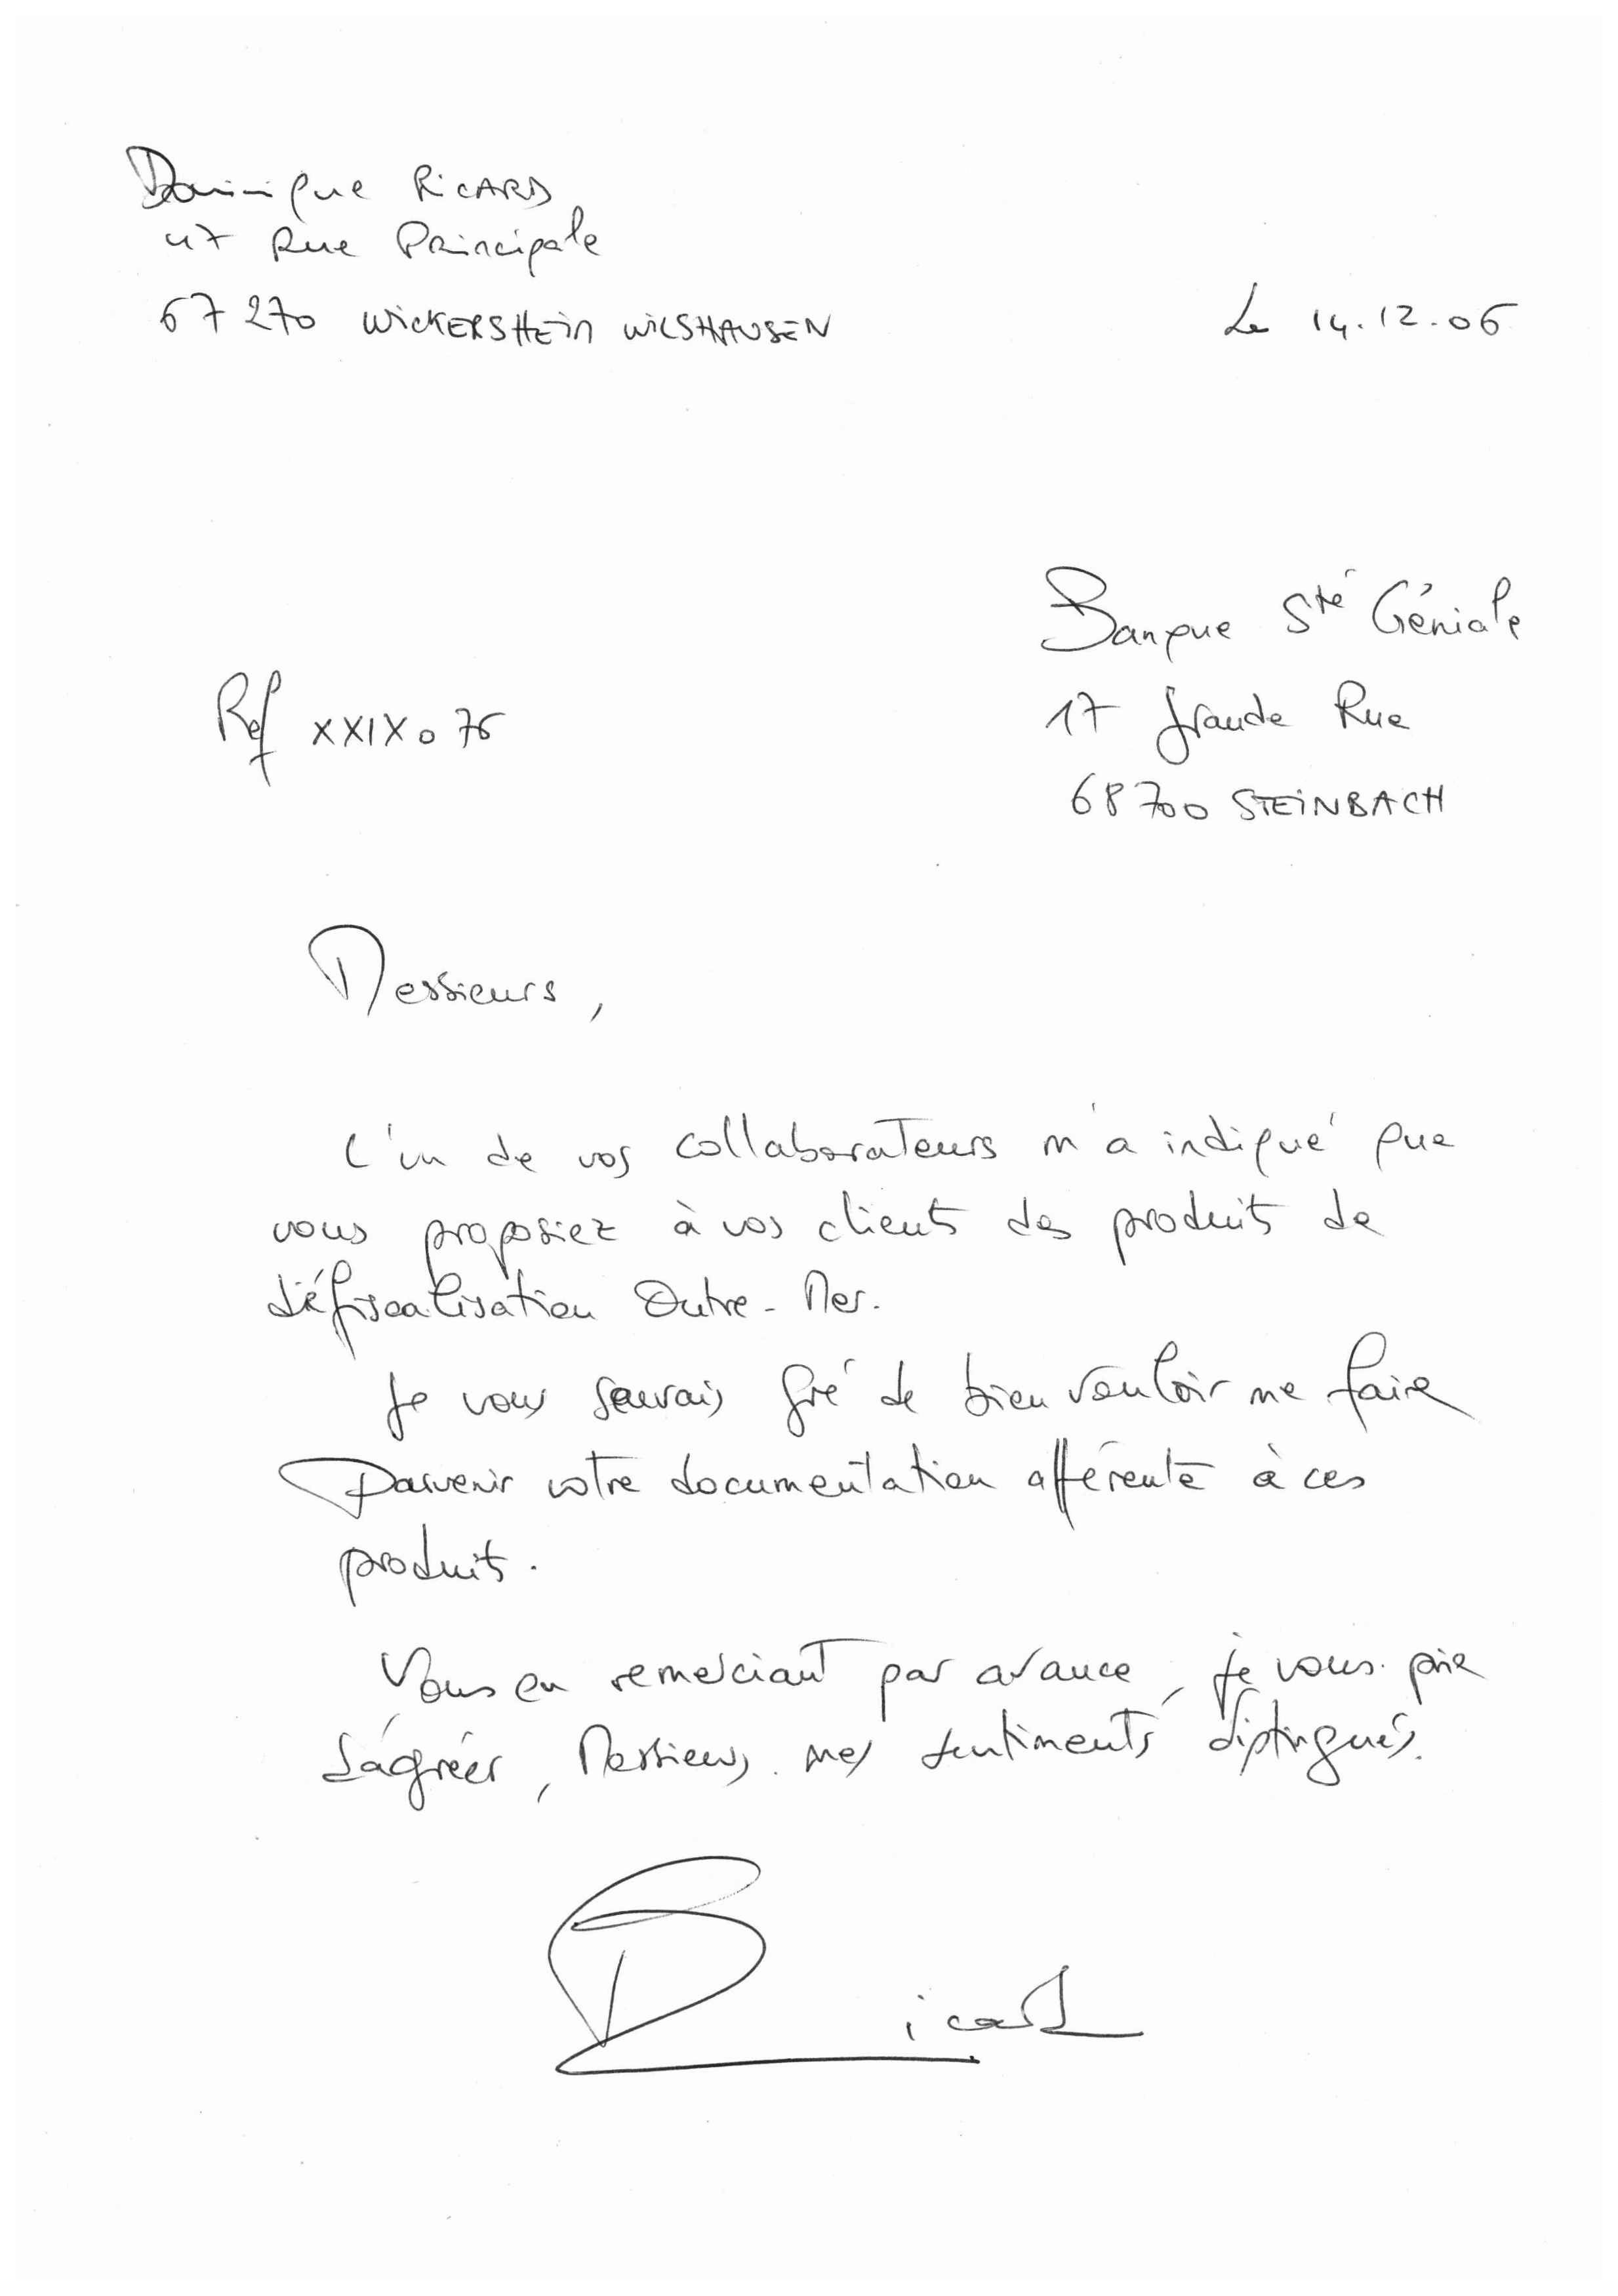 Dominique RICARD
47 Rue Principale
67270 WICKERSHEIM WILSHAUSEN
Le 14.12.06
Banque Sté Géniale
Ref XXIXo76
17 grande Rue
68700 STEINBACH
Messieurs,
L'un de vos collaborateurs m'a indiqué que
vous proposiez à vos clients des produits de
défiscalisation Outre-Mer.
Je vous saurais gré de bien vouloir me faire
Parvenir votre documentation afférente à ces
produits.
Vous en remerciant par avance, je vous prie
d'agréer, Messieurs, mes sentiments distingués.
Ricard